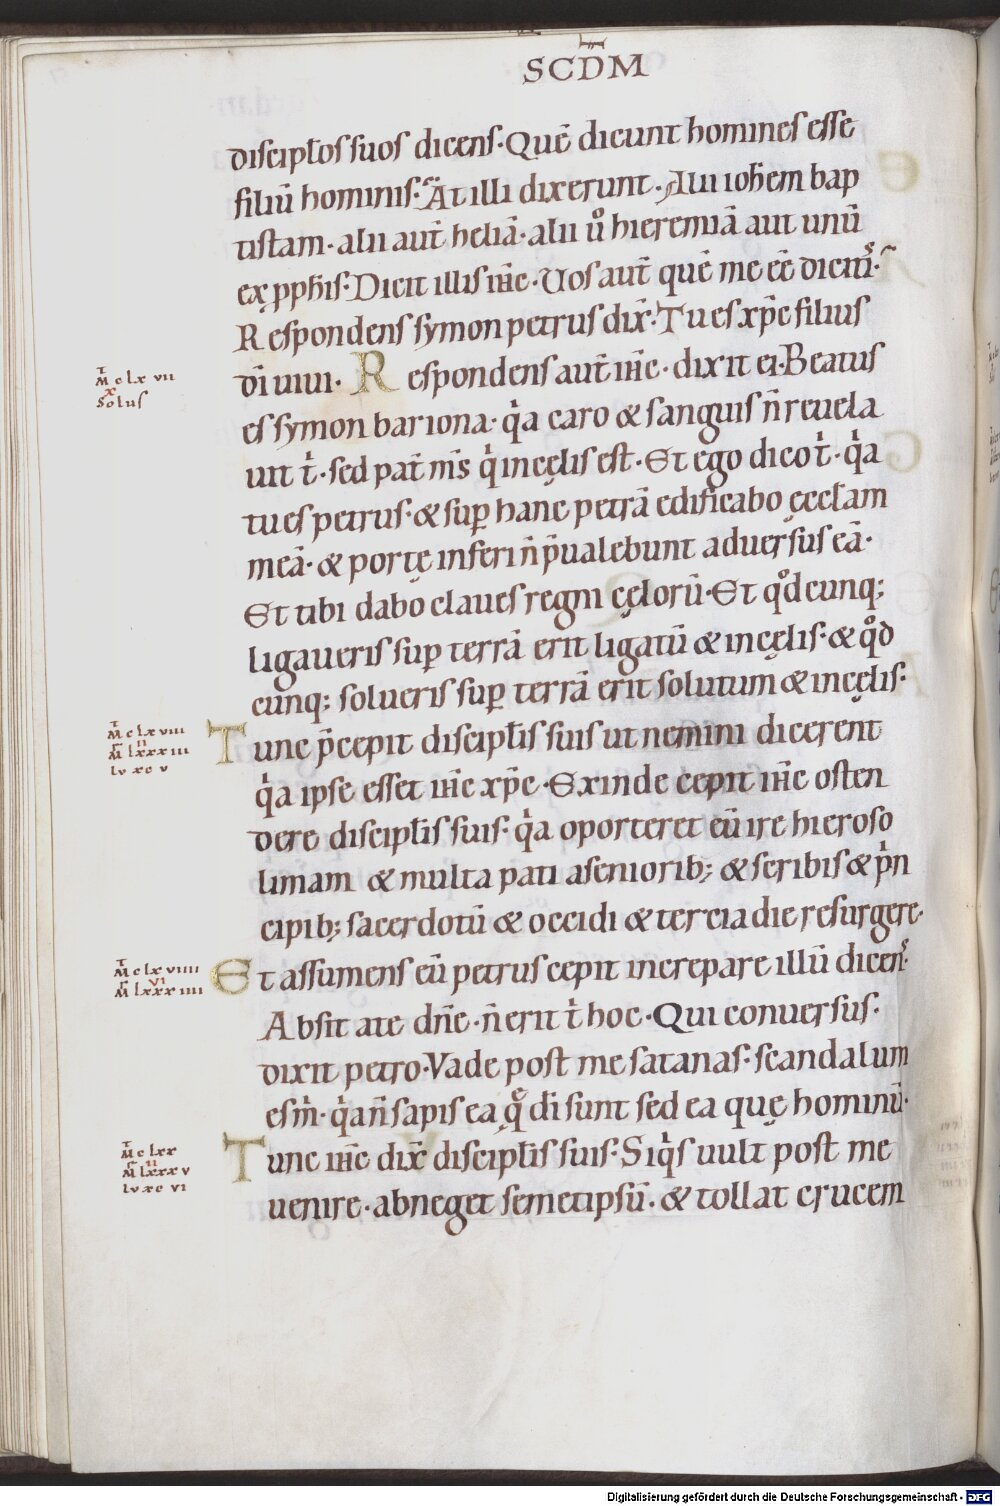 SCD̄M
discipl̄os suos dicens· Quē dicunt homines esse
filiū hominis·̃ At illi dixerunt· Alii ioh̄em bap
tistam· alii aut̄ heliā· alii ů hieremiā aut unū
ex pph̄is· Dicit illis ih̄c· Uos aut̄ quē me eē dicitiˢ·̃
Respondens symon petrus dix̄· Tu es xp̄c filius
dī uiui· Respondens aut̄ ih̄c· dixit ei· Beatus
es symon bariona· qͥa caro & sanguis n̄ reuela
uit tͥ· sed pat̄ m̄s qͥ in cęlis est· Et ego dico tͥ· qͥa
tu es petrus· & sup̱ hanc petrā edificabo ęccl̄am
meā· & portę inferi n̄ p̄ualebunt aduersus eā·
Et tibi dabo claues regni cęlorū· Et qͦdcunq;
ligaueris sup̱ terrā erit ligatū & in cęlis· & qͦd
cunq; solueris sup̱ terrā erit solutum & in cęlis·
Tunc p̄cepit discipl̄is suis ut nemini dicerent
qͥa ipse esset ih̄c xp̄c· Exinde cepit ih̄c osten
dere discipl̄is suis· qͥa oporteret eū ire hieroso
limam & multa pati a seniorib; & scribis & pͥn
cipib; sacerdotū & occidi & tercia die resurgere·
Et assumens eū petrus cepit increpare illū dicenˢ·
Absit a te dn̄e· n̄ erit tͥ hoc· Qui conuersus·
dixit petro· Vade post me satanas· scandalum
es mͥ· qͥa n̄ sapis ea q̨̄ dī sunt sed ea quę hominū·
Tunc ih̄c dix̄ discipl̄is suis· Si qͥs uult post me
uenire· abneget semetipsū· & tollat crucem
T
M clxvii
X
Solus
T
M clxviii
II
M lxxxiii
Lv xcv
T
M clxviiii
VI
M lxxxiiii
T
M clxx
II
M lxxxv
Lv xcvi
Digitalisierung gefördert durch die Deutsche Forschungsgemeinschaft - DFG